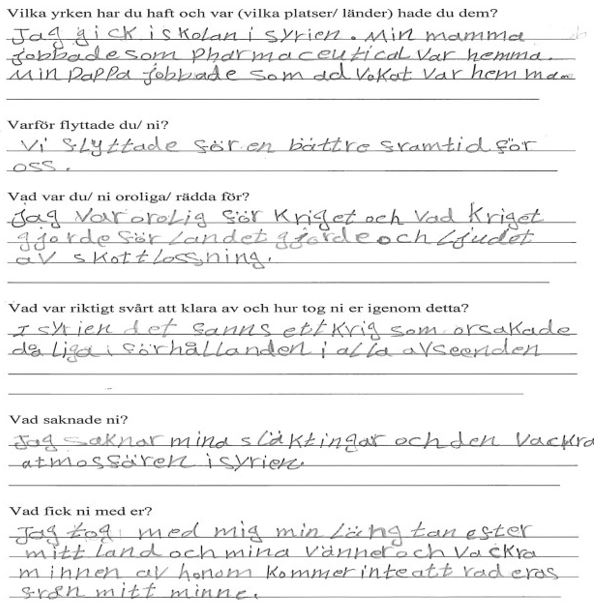 Vilka yrken har du haft och var (vilka platser/ länder) hade du dem?
Jag gick i skolan i syrien. Min mamma
jobbade som Pharmaceutical Var hemma.
Min Pappa jobbade som advokat Var hemma
Varför flyttade du/ ni?
Vi flyttade för en bättre framtid för
oss.
Vad var du/ ni oroliga/ rädda för?
Jag Var orolig för Kriget och Vad Kriget
gjorde för landet gjorde och ljudet
av skottlossning.
Vad var riktigt svårt att klara av och hur tog ni er igenom detta?
I syrien det fanns ett krig som orsakade
dåliga förhållanden i alla avseenden
Vad saknade ni?
Jag saknar mina släktingar och den Vackra
atmosfären i syrien.
Vad fick ni med er?
Jag tog med mig min längtan efter
mitt land och mina vänner och Vackra
minnen av honom kommer inte att raderas
från mitt minne.